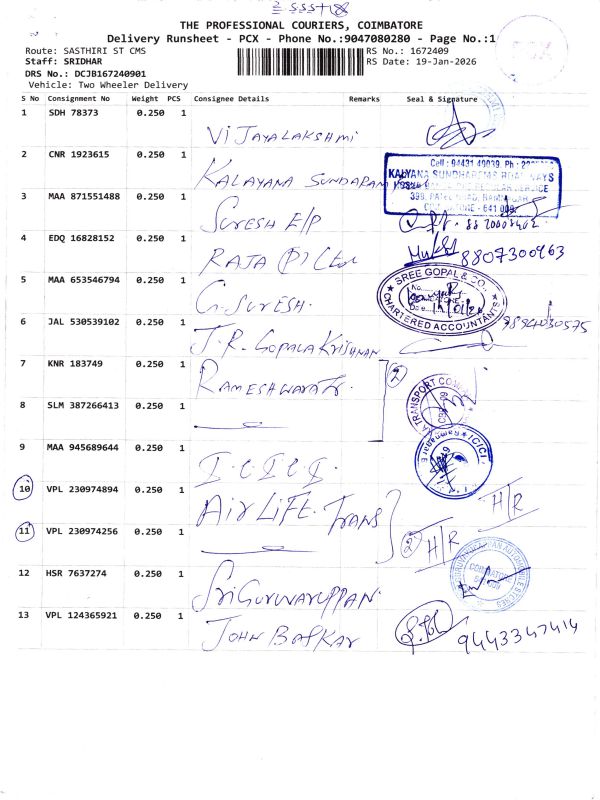 THE PROFESSIONAL COURIERS, COIMBATORE
Delivery Runsheet - PCX - Phone No.:9047080280 - Page No.:1
Route: SASTHIRI ST CMS
RS No.: 1672409
Staff: SRIDHAR
RS Date: 19-Jan-2026
DRS No.: DCJB167240901
Vehicle: Two Wheeler Delivery
S No Consignment No Weight PCS Consignee Details Remarks Seal & Signature
1 SDH 78373 0.250 1
VIJAYALAKSHMI
2 CNR 1923615 0.250 1
KALAYANA SUNDARAM
Cell : 94431 49039, Ph :
KALYANA SUNDHAREMS ROADWAYS
3 MAA 871551488 0.250 1
SURESH E/P
4 EDQ 16828152 0.250 1
RAJA (P) Ltd
8807300963
5 MAA 653546794 0.250 1
G. SURESH.
SREE GOPAL & CO.
CHARTERED ACCOUNTANTS
6 JAL 530539102 0.250 1
J.R. GOPALA KRISHNAN
7 KNR 183749 0.250 1
RAMESHWARA Tr.
(2)
8 SLM 387266413 0.250 1
9 MAA 945689644 0.250 1
I.C.I.C.I.
ICICI
10 VPL 230974894 0.250 1
AIR LIFE TRANS
H/R
11 VPL 230974256 0.250 1
(2) H/R
12 HSR 7637274 0.250 1
SRI GURUVARUPPAN.
COIMBATORE
13 VPL 124365921 0.250 1
JOHN BASKAR
9443347414